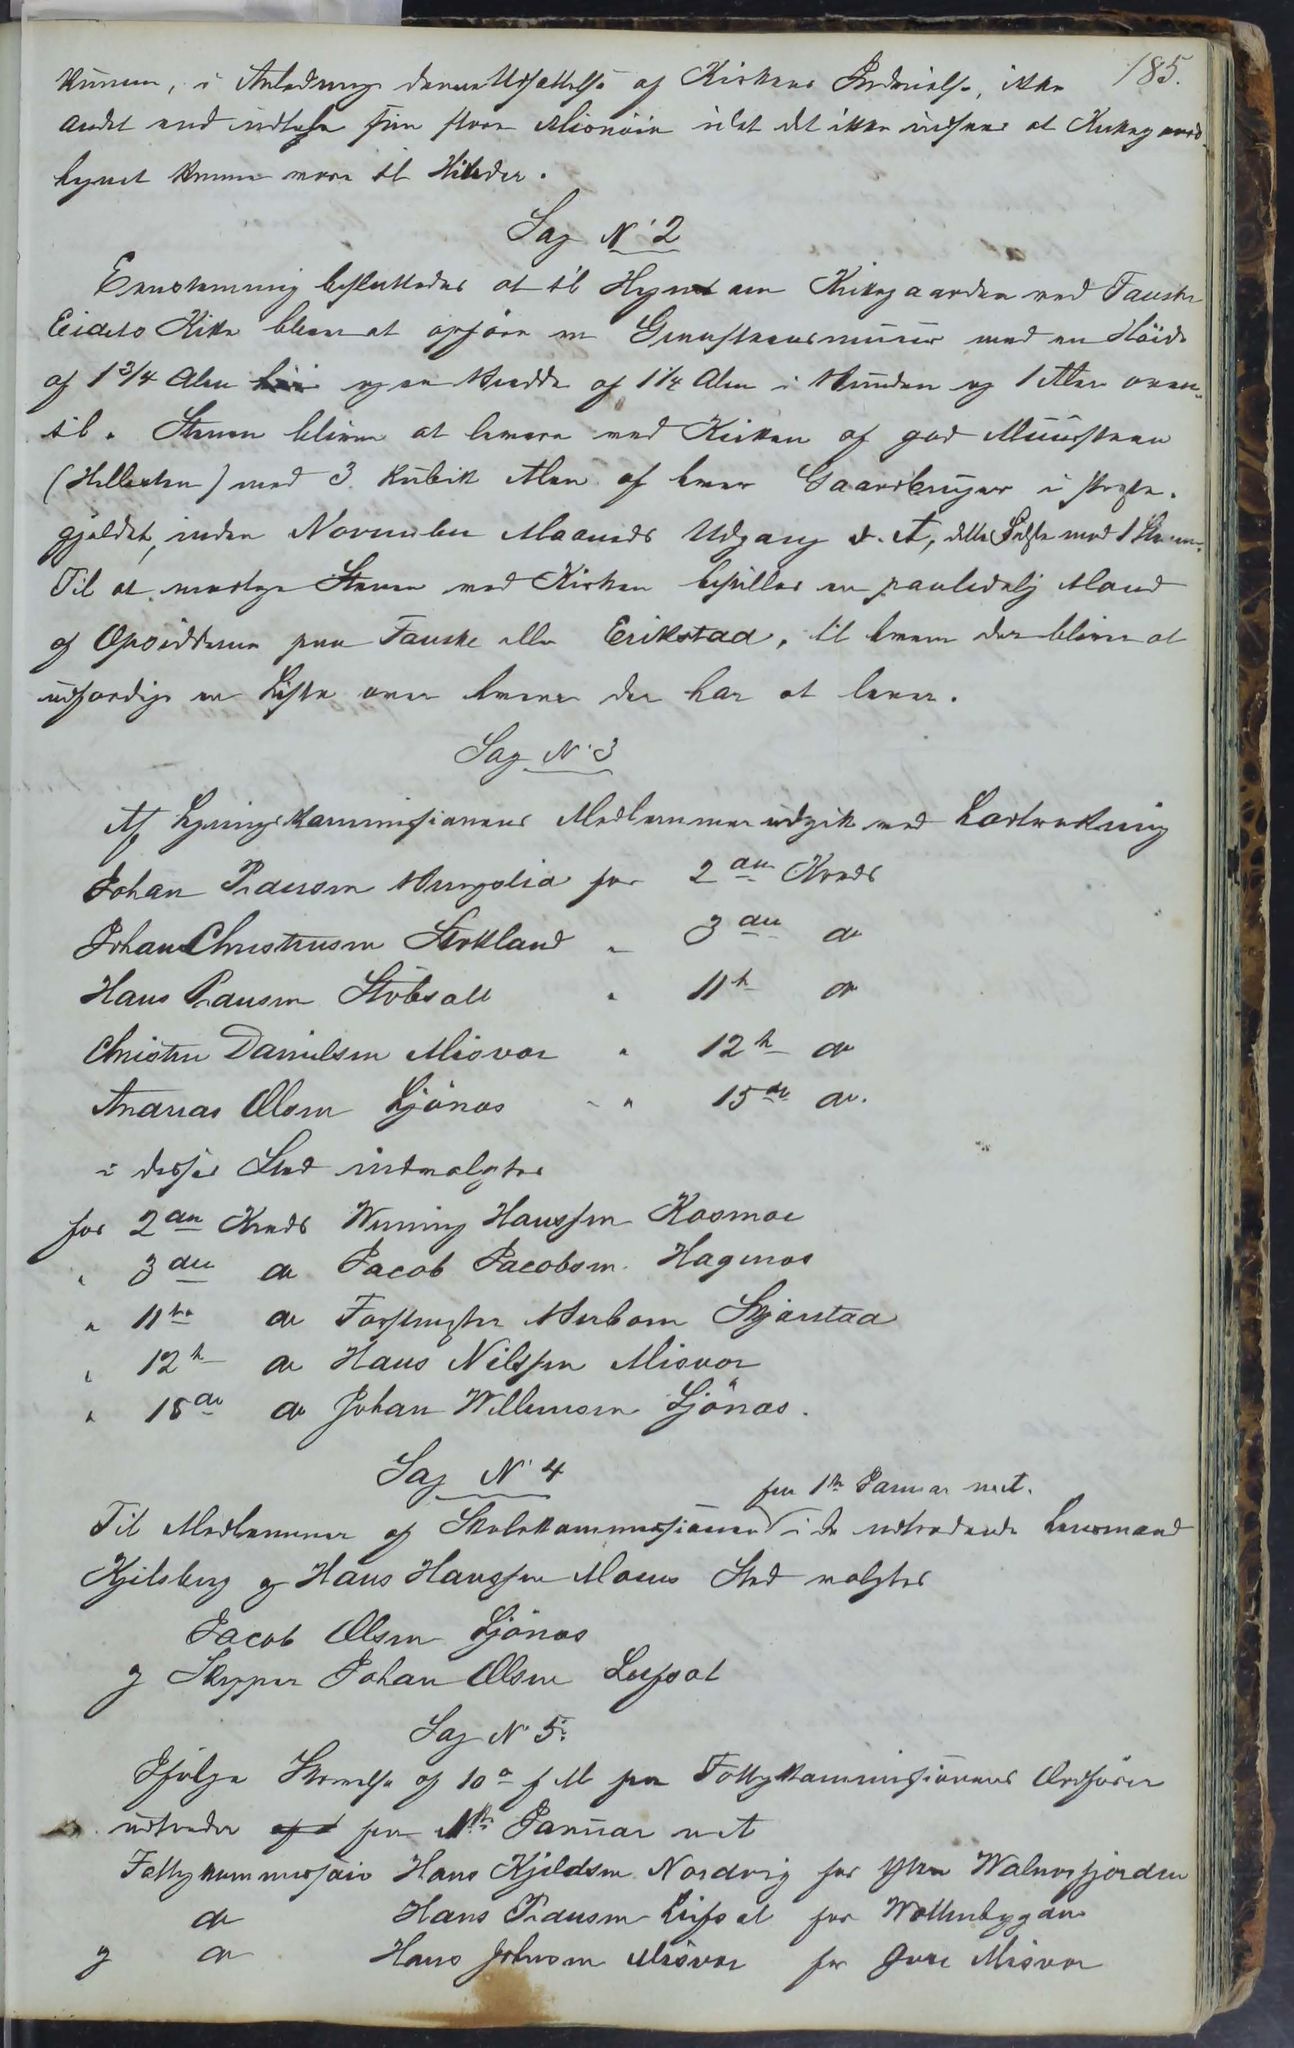 185.
kunne, i Anledning denne Udsættelse af Kirkens Indvielse, ikke
andet end indtage sin store Misnöie idet det ikke indsees at Kirkegaards
hegnet kunne være til Hinder.
Sag N. 2
Eenstemmig besluttedes at til Hegn om Kirkegaarden ved Fauske
Eidets Kirke bliver at opföre en Graasteensmuur med en Höide
af 1 3/4 Alen og en Bredde af 1 1/4 Alen i Bunden og 1 Alen oven-
til. Stenen bliver at levere ved Kirken af god Muursteen
(Hellesten) med 3 Kubik Alen af hver Gaardbruger i Præste-
gjældet, inden November Maaneds Udgang d. A, dette med 1
Til at modtage Stenen ved Kirken bestilles en paalidelig Mand
af Opsidderne paa Fauske eller Erikstad, til hvem der bliver at
udfærdige en Liste over hvem der har at levere.
Sag N. 3
Af Ligningskommissionens Medlemmer udgik ved Lodtrækning
Johan Pedersen for 2den Kreds
Johan Christensen Stokland " 3die do
Hans Pedersen " 11te do
Christen Danielsen Misvær " 12te do
Andreas Olsen Ljönæs " 15de do.
i disses Sted indvalgtes
for 2den Kreds Hansen Kosmoe
" 3die do Jacob Jacobsen Hagenæs
" 11te do Forstmester Skjerstad
" 12te do Hans Nilsen Misvær
" 15de do Johan Willumsen Ljönæs.
Sag N. 4
fra 1ste Januar næst.
Til Medlemmer af Skolekommissionen i de udtrædende Lensmand
Kjelsberg og Hans Hanssen Moens Sted valgtes
Jacob Olsen Ljönæs
og Skipper Johan Olsen Leifset
Sag N. 5.
Ifölge Skrivelse af 10de f M fra Fattigkommissionens Ordförer
udtræder fra 1ste Januar næst
Fattigkommissair Hans Kjeldsen Nordvig for Ytre Walnesfjorden
do Hans Pedersen Leifset for
og do Hans Johnsen Misvær for Övre Misvær